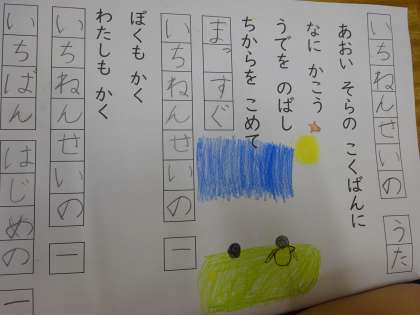 いちねんせいの うた
あおい そらの こくばんに
なに かこう
うでを のばし
ちからを こめて
まっすぐ
いちねんせいの 一
ぼくも かく
わたしも かく
いちねんせいの 一
いちばん はじめの 一